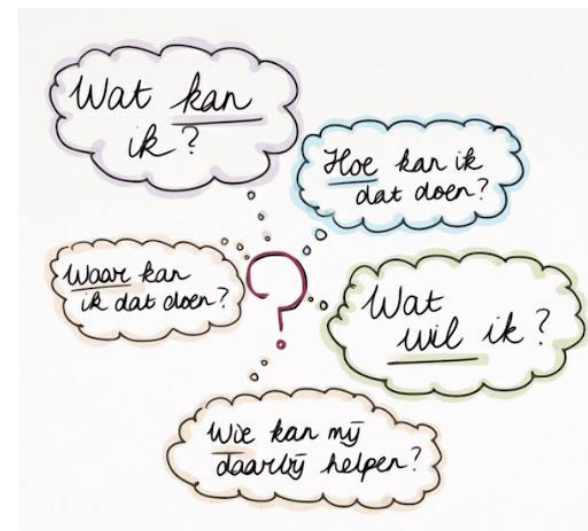 Wat kan
ik?
Hoe kan ik
dat doen?
Waar kan
ik dat doen?
Wat
wil ik?
Wie kan mij
daarbij helpen?